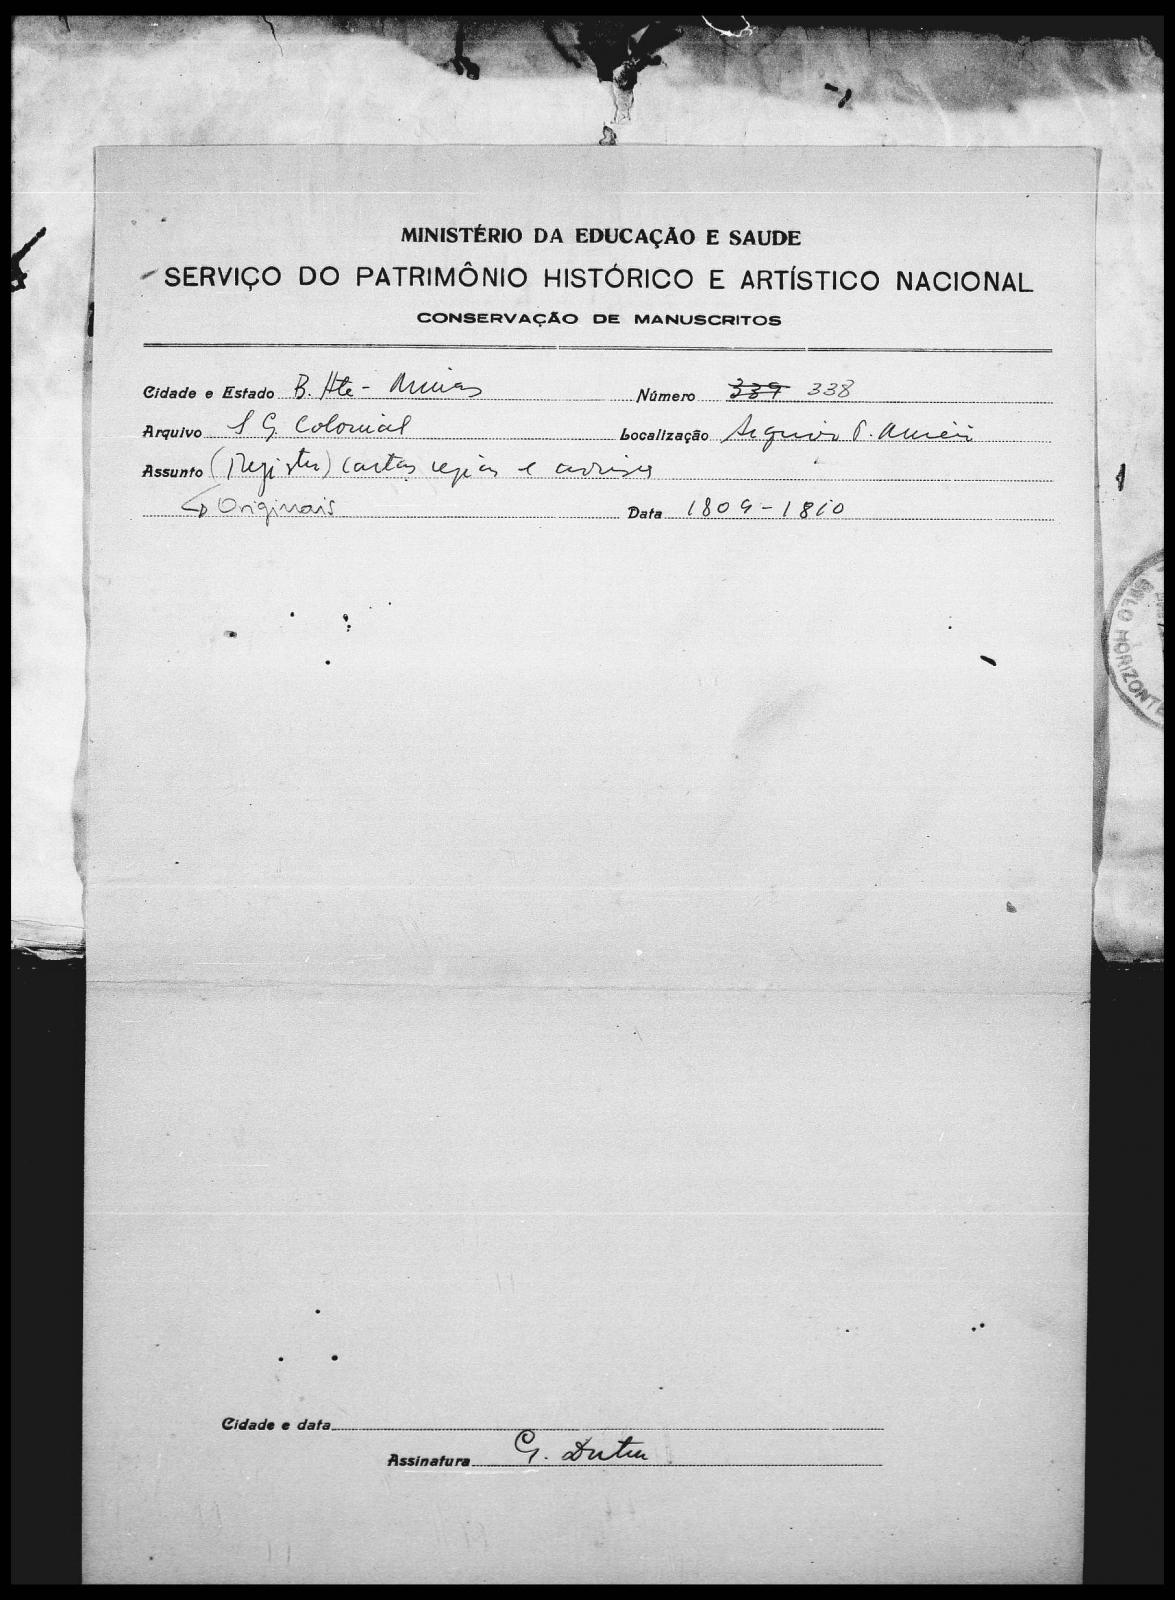 MINISTÉRIO DA EDUCAÇÃO E SAUDE
SERVIÇO DO PATRIMÔNIO HISTÓRICO E ARTÍSTICO NACIONAL
CONSERVAÇÃO DE MANUSCRITOS
Cidade e Estado B. Hte - Minas Número 339 338
Arquivo S G. Colonial Localização Arquivo P. Mineiro
Assunto (Registro) cartas regias e avisos
Originais Data 1809-1810
BELO HORIZONTE
Cidade e data
Assinatura G. Dutra